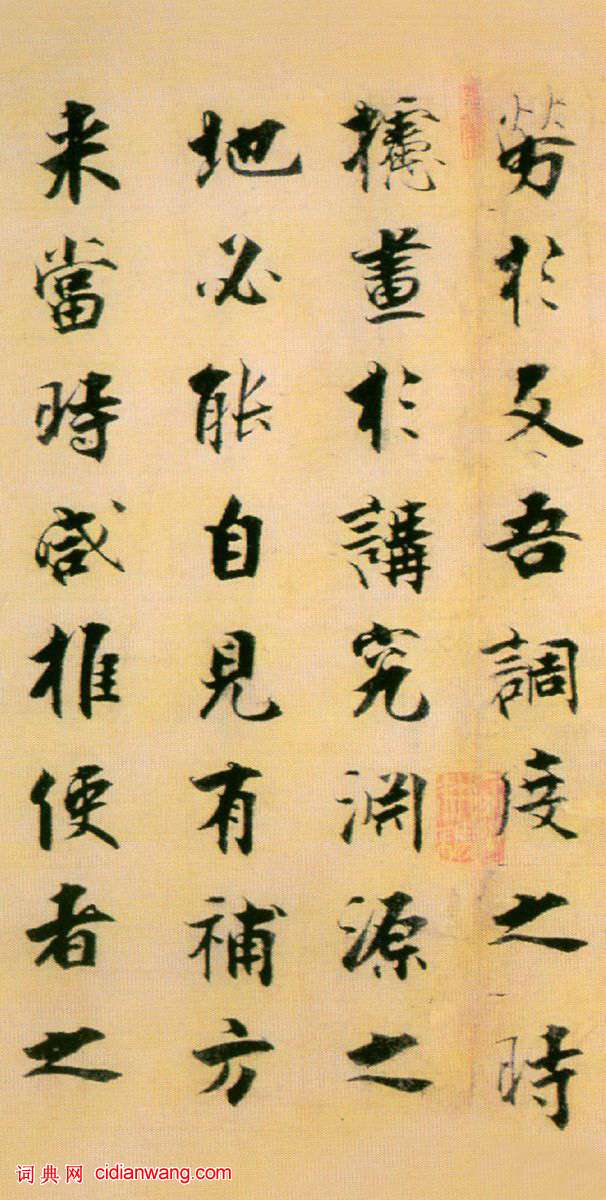 勞於支吾調度之時
攄畫於講究淵源之
地必能自見有補方
来當時咸推使者之
词典网 cidianwang.com